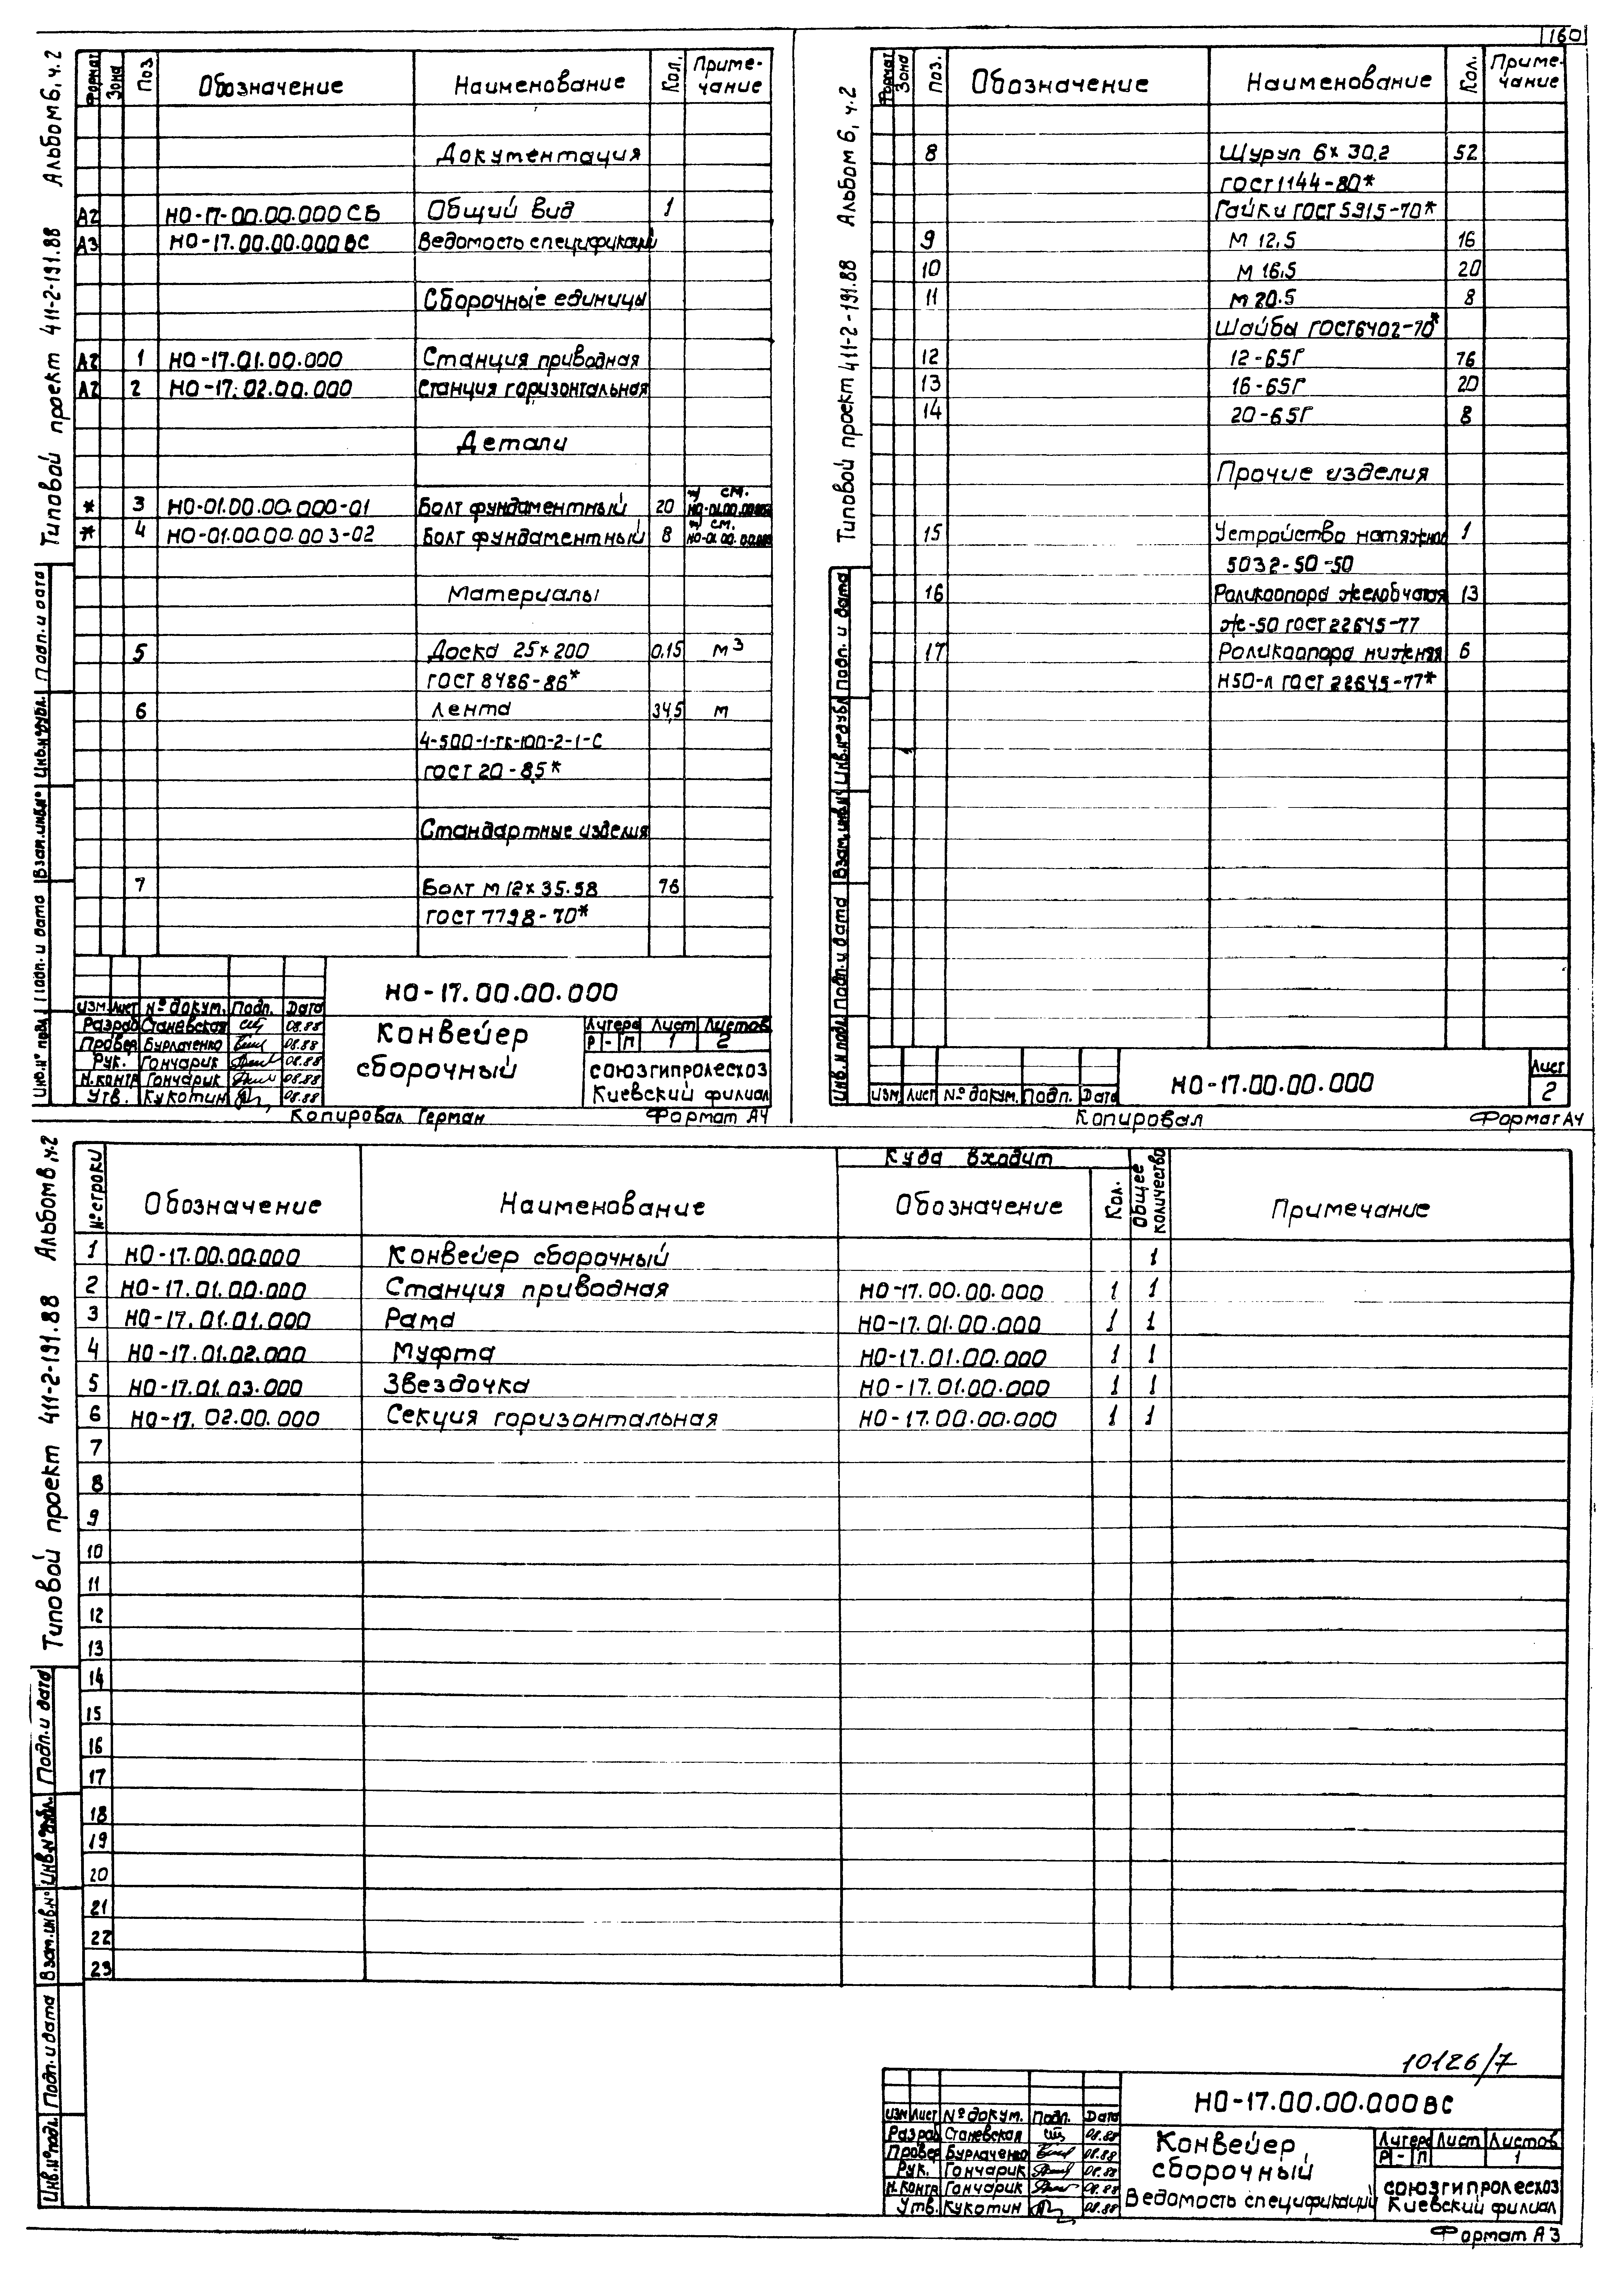 160
Типовой проект 411-2-191.88 Альбом 6, ч.2
Формат Зона Поз Обозначение Наименование Кол. Приме-
чание
Документация
А2 НО-17-00.00.000 СБ Общий вид 1
А3 НО-17.00.00.000 ВС Ведомость спецификаций
Сборочные единицы
А2 1 НО-17.01.00.000 Станция приводная
А2 2 НО-17.02.00.000 Станция горизонтальная
Детали
* 3 НО-01.00.00.000-01 Болт фундаментный 20 *) см.
* 4 НО-01.00.00.003-02 Болт фундаментный 8 *) см.
Материалы
5 Доска 25х200 0,15 м3
ГОСТ 8486-86*
6 Лента 34,5 м
4-500-1-ТК-100-2-1-С
ГОСТ 20-85*
Стандартные изделия
7 Болт М12х35.58 76
ГОСТ 7798-70*
Инв.№ подл Подп. и дата Взам.инв.№ Инв.№дубл. Подп. и дата
НО-17.00.00.000
Изм Лист № докум. Подп. Дата
Разраб Станевская 08.88
Провер Бурлаченко 08.88
Рук. Гончарик 08.88
Н.контр Гончарик 08.88
Утв. Кукотин 08.88
Конвейер
сборочный
Литера Лист Листов
Р - П 1 2
союзгипролесхоз
Киевский филиал
Копировал Герман Формат А4
Типовой проект 411-2-191.88 Альбом 6, ч.2
Формат Зона Поз. Обозначение Наименование Кол. Приме-
чание
8 Шуруп 6х30.2 52
ГОСТ 1144-80*
Гайки ГОСТ 5915-70*
9 М 12.5 16
10 М 16.5 20
11 М 20.5 8
Шайбы ГОСТ 6402-70*
12 12-65Г 76
13 16-65Г 20
14 20-65Г 8
Прочие изделия
15 Устройство натяжное 1
5032-50-50
16 Роликоопора желобчатая 13
Ж-50 ГОСТ 22645-77
17 Роликоопора нижняя 6
Н50-Л ГОСТ 22645-77*
Инв.№ подл. Подп. и дата Взам.инв.№ Инв.№дубл Подп. и дата
Изм Лист № докум. Подп. Дата
НО-17.00.00.000
Лист
2
Копировал Формат А4
Типовой проект 411-2-191.88 Альбом в ч.2
№ строки Обозначение Наименование Куда входит Обозначение Кол. Общее количество Примечание
1 НО-17.00.00.000 Конвейер сборочный 1
2 НО-17.01.00.000 Станция приводная НО-17.00.00.000 1 1
3 НО-17.01.01.000 Рама НО-17.01.00.000 1 1
4 НО-17.01.02.000 Муфта НО-17.01.00.000 1 1
5 НО-17.01.03.000 Звездочка НО-17.01.00.000 1 1
6 НО-17.02.00.000 Секция горизонтальная НО-17.00.00.000 1 1
7
8
9
10
11
12
13
14
15
16
17
18
19
20
21
22
23
Инв.№подл. Подп. и дата Взам.инв.№ Инв.№дубл. Подп.и дата
10126/7
НО-17.00.00.000 ВС
Изм Лист № докум. Подп. Дата
Разраб Станевская 08.88
Провер Бурлаченко 08.88
Рук. Гончарик 08.88
Н.контр Гончарик 08.88
Утв. Кукотин 08.88
Конвейер
сборочный
Ведомость спецификаций
Литера Лист Листов
Р - П 1
союзгипролесхоз
Киевский филиал
Формат А3